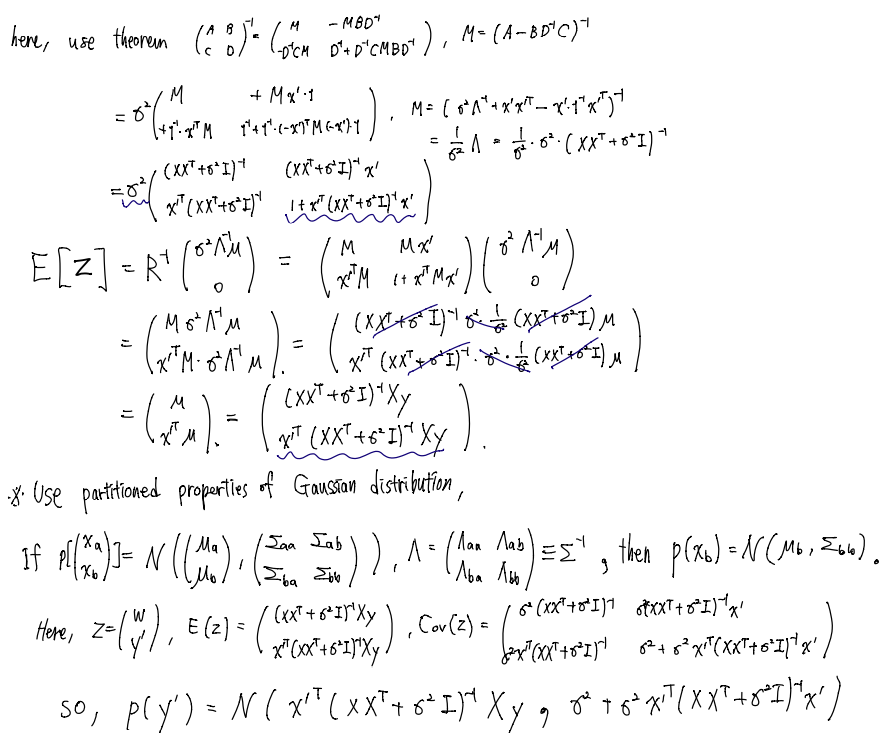 here, use theorem (A B; C D)⁻¹ = (M  -MBD⁻¹; -D⁻¹CM  D⁻¹+D⁻¹CMBD⁻¹), M=(A-BD⁻¹C)⁻¹
= σ²(M  +Mx'·1; +1⁻¹·x'ᵀM  1⁻¹+1⁻¹·(-x')ᵀM(-x')·1), M=(σ²Λ⁻¹+x'x'ᵀ-x'·1⁻¹x'ᵀ)⁻¹
= 1/σ² Λ = 1/σ²·σ²·(XXᵀ+σ²I)⁻¹
= σ²((XXᵀ+σ²I)⁻¹  (XXᵀ+σ²I)⁻¹x'; x'ᵀ(XXᵀ+σ²I)⁻¹  1+x'ᵀ(XXᵀ+σ²I)⁻¹x')
E[Z] = R⁻¹(σ²Λ⁻¹μ; 0) = (M  Mx'; x'ᵀM  1+x'ᵀMx')(σ²Λ⁻¹μ; 0)
= (Mσ²Λ⁻¹μ; x'ᵀM·σ²Λ⁻¹μ). = ((XXᵀ+σ²I)⁻¹σ²·1/σ²(XXᵀ+σ²I)μ; x'ᵀ(XXᵀ+σ²I)⁻¹·σ²·1/σ²(XXᵀ+σ²I)μ)
= (μ; x'ᵀμ). = ((XXᵀ+σ²I)⁻¹Xy; x'ᵀ(XXᵀ+σ²I)⁻¹Xy).
※ Use partitioned properties of Gaussian distribution,
If p[(xa; xb)] = N((μa; μb), (Σaa Σab; Σba Σbb)), Λ = (Λaa Λab; Λba Λbb) ≡ Σ⁻¹, then p(xb) = N(μb, Σbb).
Here, Z=(w; y'), E(z) = ((XXᵀ+σ²I)⁻¹Xy; x'ᵀ(XXᵀ+σ²I)⁻¹Xy), Cov(z) = (σ²(XXᵀ+σ²I)⁻¹  σ²(XXᵀ+σ²I)⁻¹x'; σ²x'ᵀ(XXᵀ+σ²I)⁻¹  σ²+σ²x'ᵀ(XXᵀ+σ²I)⁻¹x')
so, p(y') = N(x'ᵀ(XXᵀ+σ²I)⁻¹Xy, σ²+σ²x'ᵀ(XXᵀ+σ²I)⁻¹x')